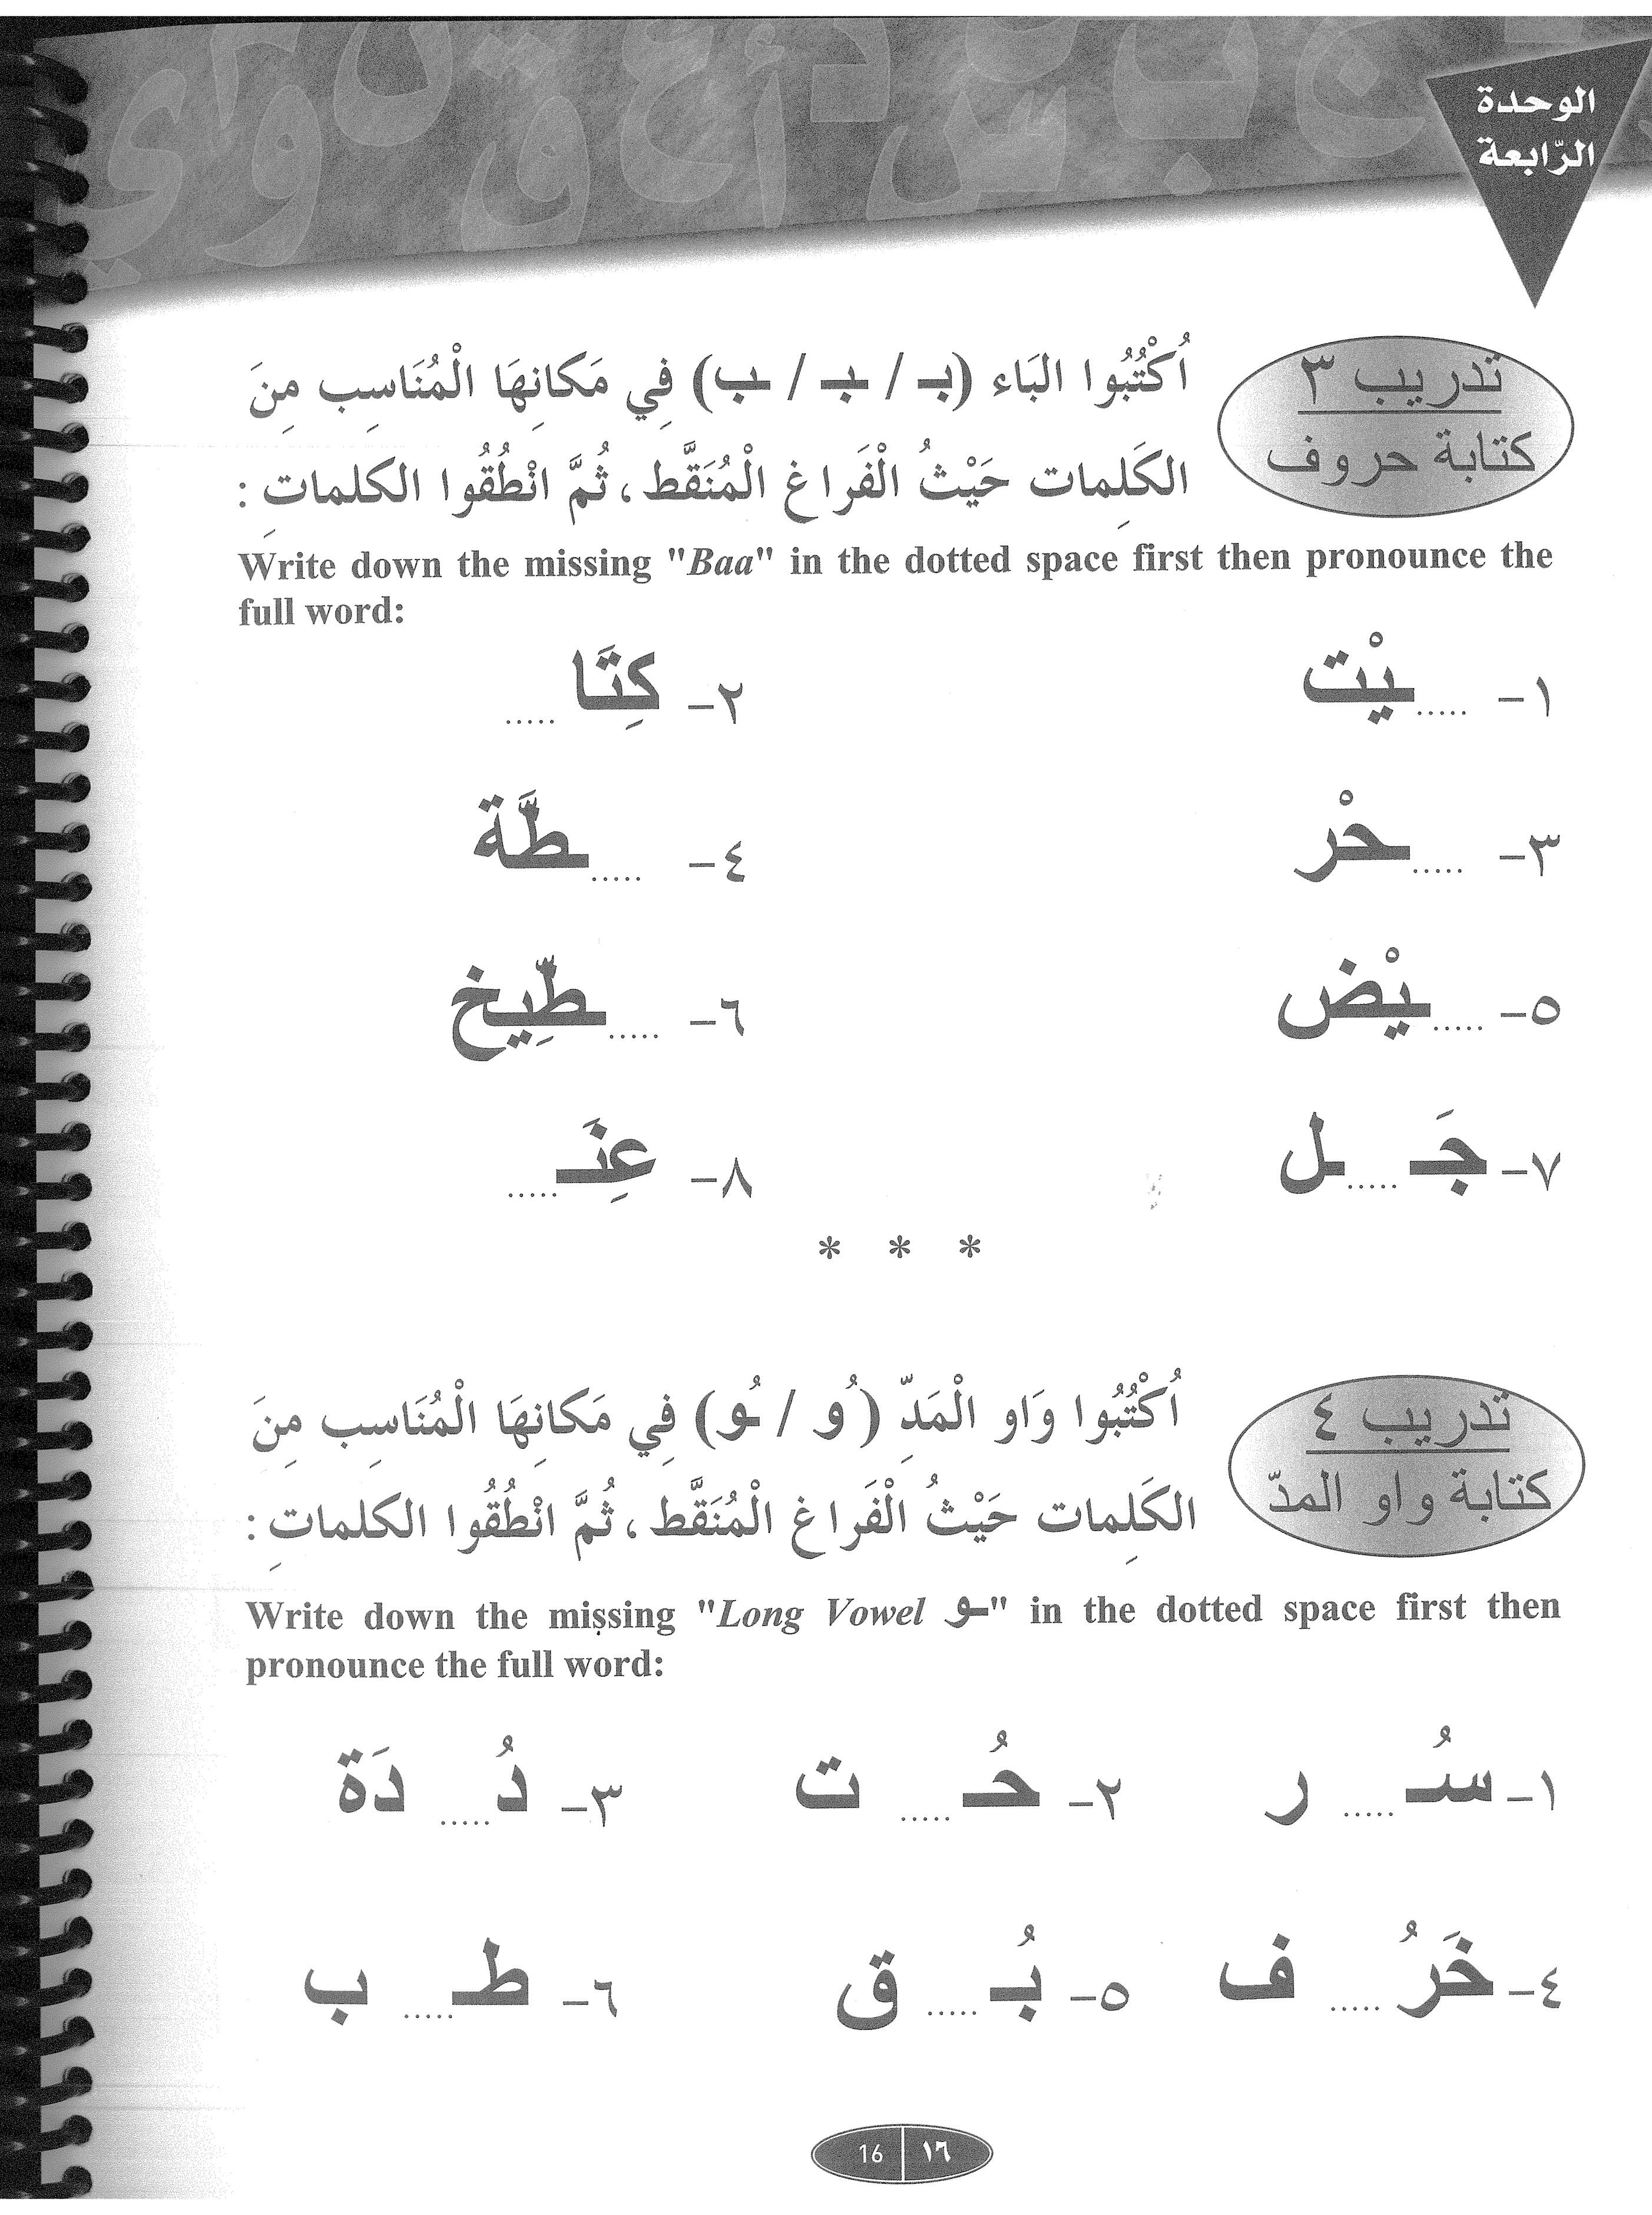 الوحدة
الرّابعة
تدريب ٣
كتابة حروف
اُكْتُبُوا البَاء (بـ / ـبـ / ـب) فِي مَكانِهَا الْمُنَاسِب مِنَ
الكَلِمات حَيْثُ الْفَراغ الْمُنَقَّط، ثُمَّ انْطُقُوا الكلماتِ:
Write down the missing "Baa" in the dotted space first then pronounce the
full word:
١- .....ـيْت ٢- كِتَا .....
٣- .....ـحْر ٤- .....ـطَّة
٥- .....ـيْض ٦- .....ـطِّيخ
٧- جَـ .....ـل ٨- عِنَـ.....
* * *
تدريب ٤
كتابة واو المدّ
اُكْتُبُوا وَاو الْمَدِّ (ـُو / ـُو) فِي مَكانِهَا الْمُنَاسِب مِنَ
الكَلِمات حَيْثُ الْفَراغ الْمُنَقَّط، ثُمَّ انْطُقُوا الكلماتِ:
Write down the missing "Long Vowel ـو" in the dotted space first then
pronounce the full word:
١- سُـ ..... ر ٢- حُـ ..... ت ٣- دُ ..... دَة
٤- خَرُ ..... ف ٥- بُـ ..... ق ٦- طـ ..... ب
16 ١٦